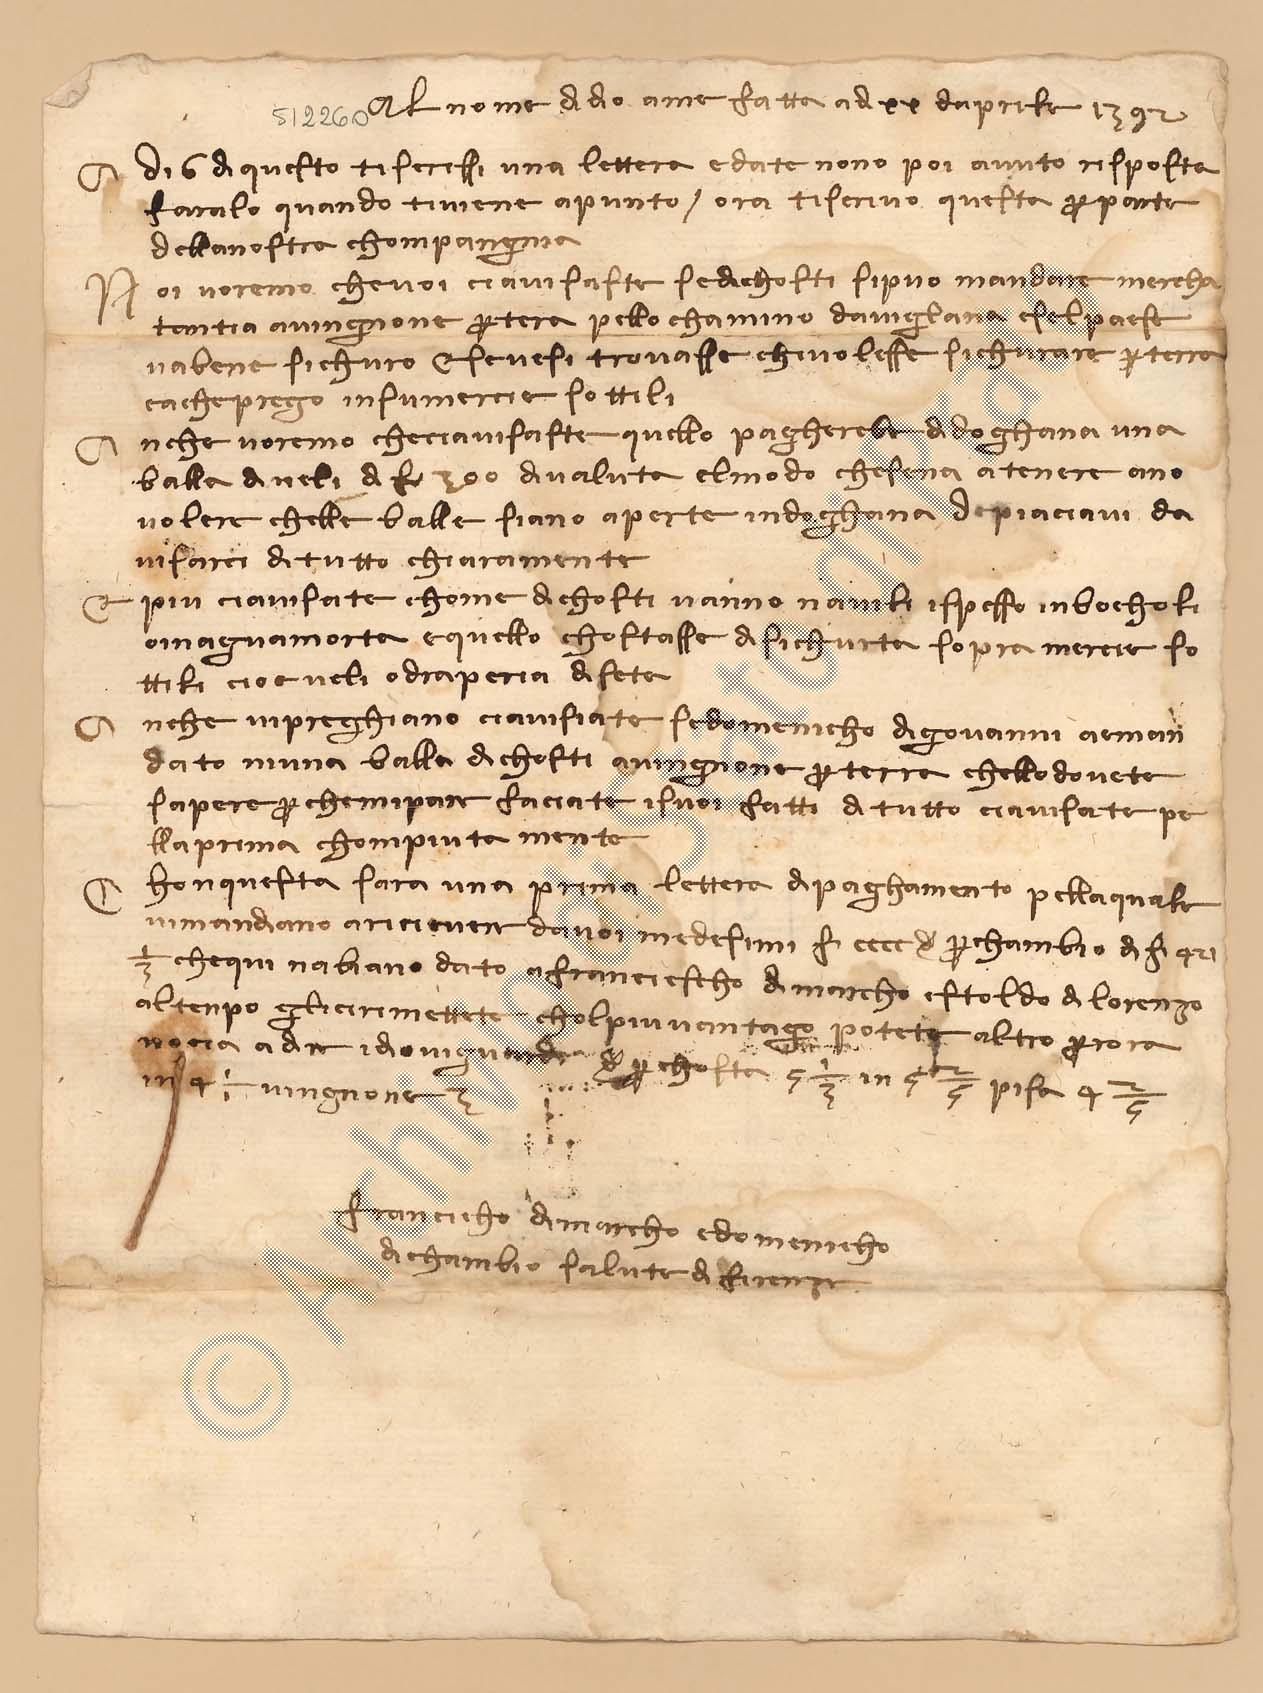 512260 Al nome di dio ame fatta a dì xx daprile 1392
A di 6 di questo ti scrissi una lettera e date nono poi avuto risposta
faralo quando tiviene apunto / ora tiscrivo questa per parte
dellanostra chompangnia
Noi voremo chevoi ciavisaste sedichosti sipuo mandare mercha
tantia avingnone per tera pello chamino davigliana esel paese
vabene sichuro et sevesi trovasse chivolesse sichurare per terra
e acheprego insumercie sottili
Anche voremo checiavisaste quello pagherebe di doghana una
balla di veli di f 300 di valuta elmodo chesena a tenere ano
volere chelle balle siano aperte in doghana depiacciavi da
visarci di tutto chiaramente
Et piu ciavisate chome dichosti vanno navili ispesso inbocholi
o in aguamorta e quello chostasse di sichurta sopra mercie so
ttili cioe veli o draperia di seta
Anche vipreghiano ciavisiate sedomenicho digiovanni aeman
dato niuna balla dichosti avingnone per terra chello dovete
sapere per chemipare facciate isuoi fatti di tutto ciavisate pe
llaprima chompiuta mente
Chonquesta sara una prima lettera di paghamento pellaquale
vimandiano aricievere davoi medesimi f cccc d per chambio di f 421
1/3 chequi nabiano dato afranciescho dimarcho estoldo di lorenzo
al tenpo glicirimettete cholpiuvantago potete altro perora
nocia a dire idiovighuardi per chosta 5 1/3 in 5 2/5 pisa 4 2/5
in 4 1/1 vingnone 3
franciescho dimarcho edomenicho
dichambio salute di firenze
© Archivio di Stato di Prato